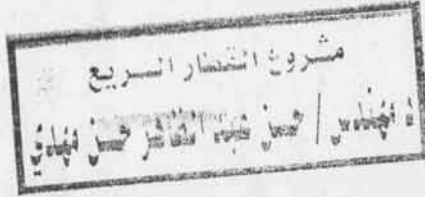 مشروع القطار السريع
د مهندس / حسن عبد الظاهر حسن مهدي